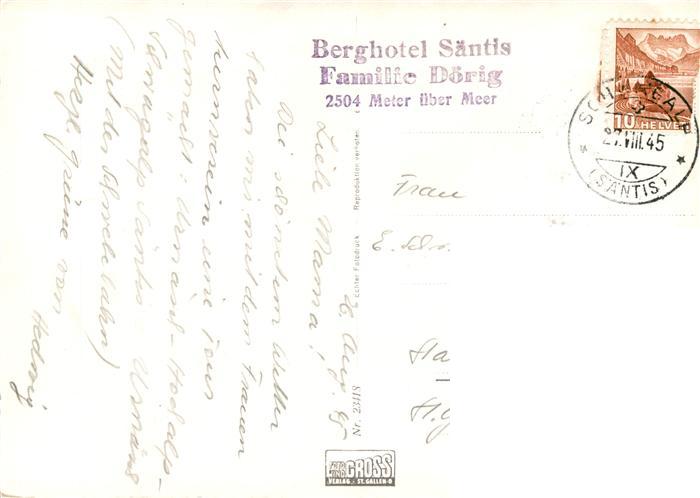 Berghotel Säntis
Familie Dörig
2504 Meter über Meer
10 HELVETIA
SCHWÄGALP
27.VIII.45
IX
(SÄNTIS)
26 Aug. 45
Liebe Mama!
Bei schönstem Wetter
haben wir mit dem Frauen
turnverein eine Tour
gemacht: Urnäsch - Hochalp -
Schwägalp Säntis - Urnäsch
(Mit der Schwebebahn)
Herzl. Grüsse von
Hedwig
Frau
E. Sch
Ha
St. G
Reproduktion verboten
Echter Fotodruck
Nr. 23418
FOTO GROSS
VERLAG - ST. GALLEN-O